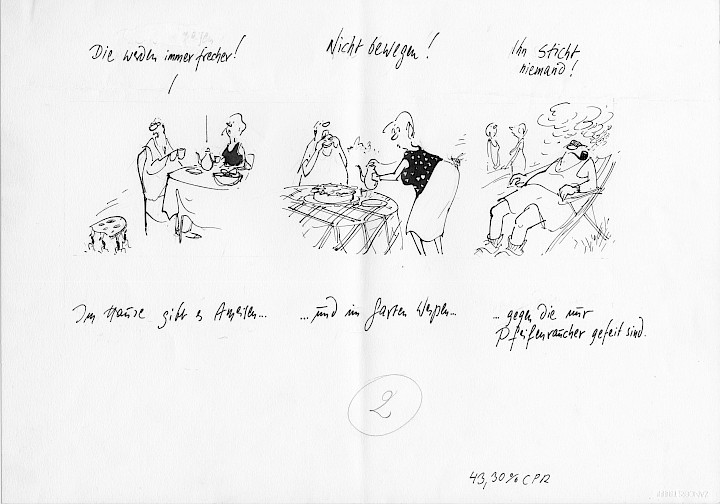 Die werden immer frecher!
Nicht bewegen!
Ihn sticht
niemand!
Im Hause gibt es Ameisen...
...und im Garten Wespen...
...gegen die nur
Pfeifenraucher gefeit sind.
2
43,30%